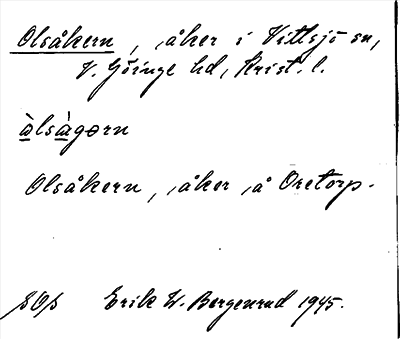 Olsåkern, åker i Vittsjö sn,
V. Göinge hd, Krist. l.
àlsàgərn
Olsåkern, åker å Oretorp.
Erik W. Bergenrud 1945.